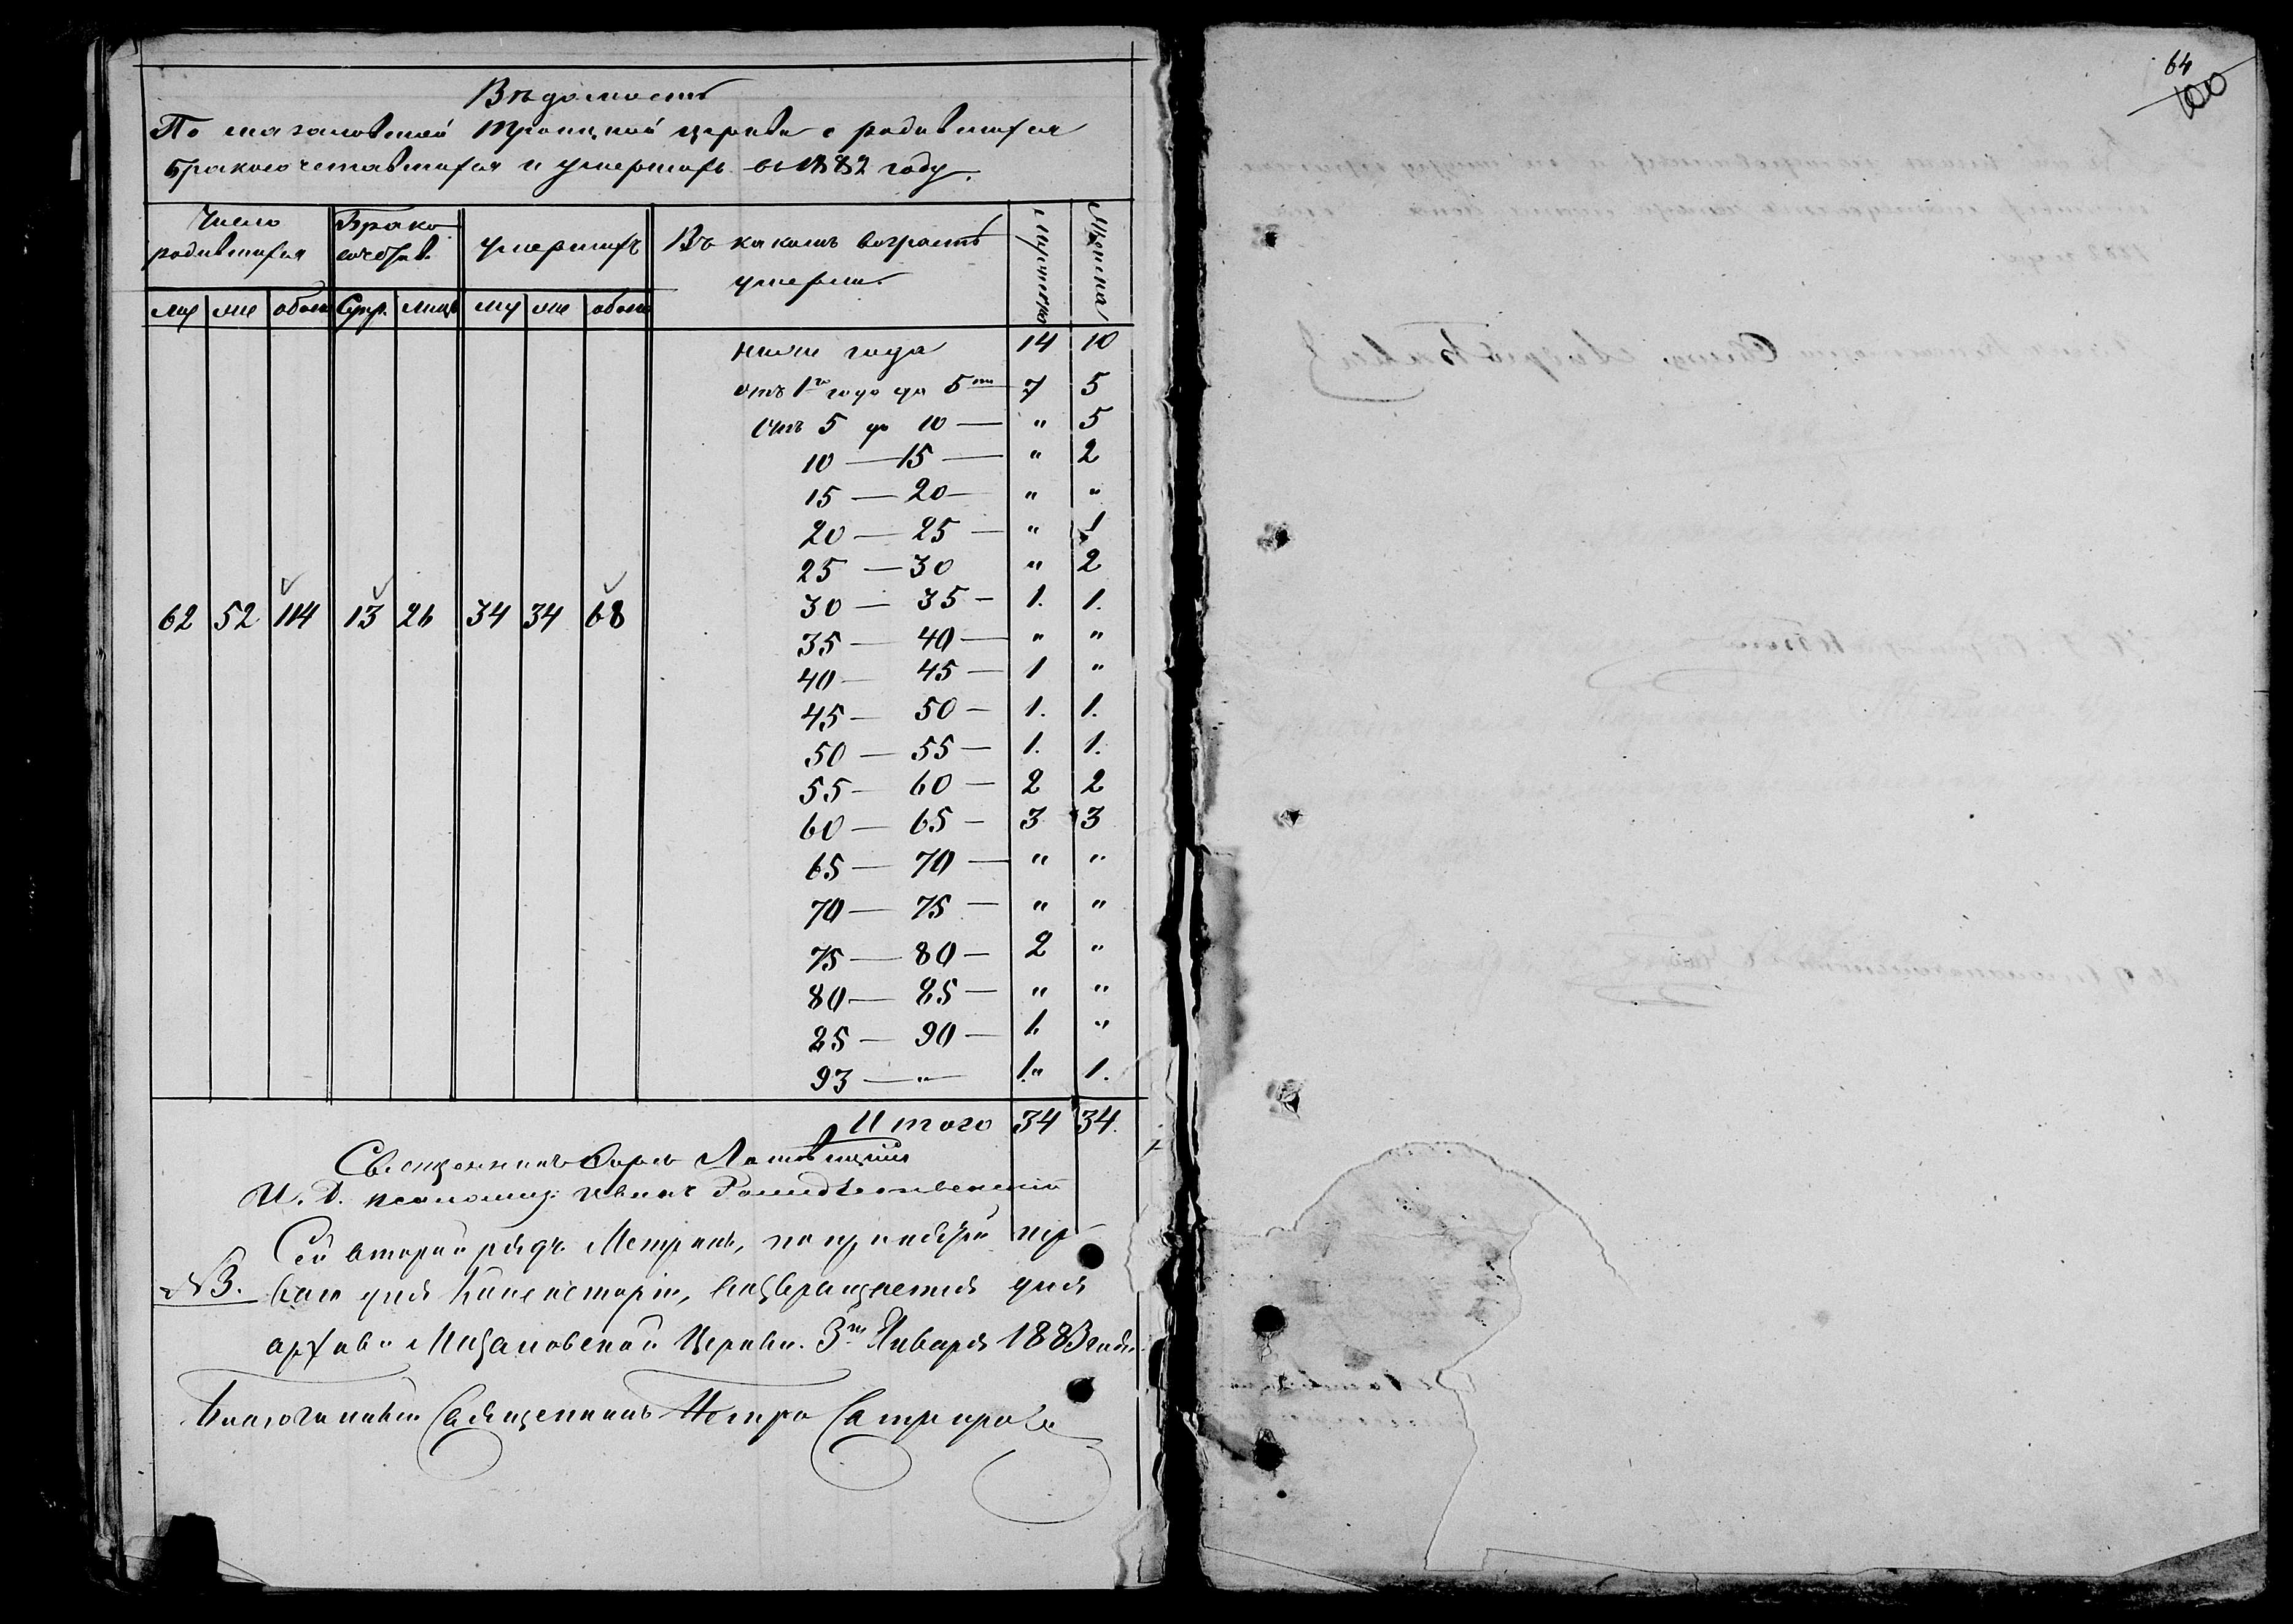 Вѣдомость
По мазановской Троицкой церкви о родившихся
бракосочетавшихся и умершихъ въ 1882 году.
Число родившихся Брако сочетав. умершихъ Въ какомъ возрастѣ умерли. Мужеска Женска
му же обоего Супр. лицъ му же обоего
ниже года 14 10
отъ 1го года до 5ти 7 5
Отъ 5 до 10 — " 5
10 — 15 — " 2
15 — 20 — " "
20 — 25 — " 1
25 — 30 " 2
62 52 114 13 26 34 34 68 30 — 35 — 1. 1.
35 — 40 — " "
40 — 45 — 1 "
45 — 50 — 1. 1.
50 — 55 — 1. 1.
55 — 60 — 2 2
60 — 65 — 3 3
65 — 70 — " "
70 — 75 — " "
75 — 80 — 2 "
80 — 85 — " "
85 — 90 — 1. "
93 — " — 1." 1.
Итого 34 34.
Священникъ
И. Д. псаломщ: Иванъ Рождественскій
Сей второй рядъ Метрикъ, по пер-
№3. ваго для Консисторіи, возвращается для
архива Мазановской Церкви. 3го Января 1883 года.
Благочинный Священникъ Петръ
64
100